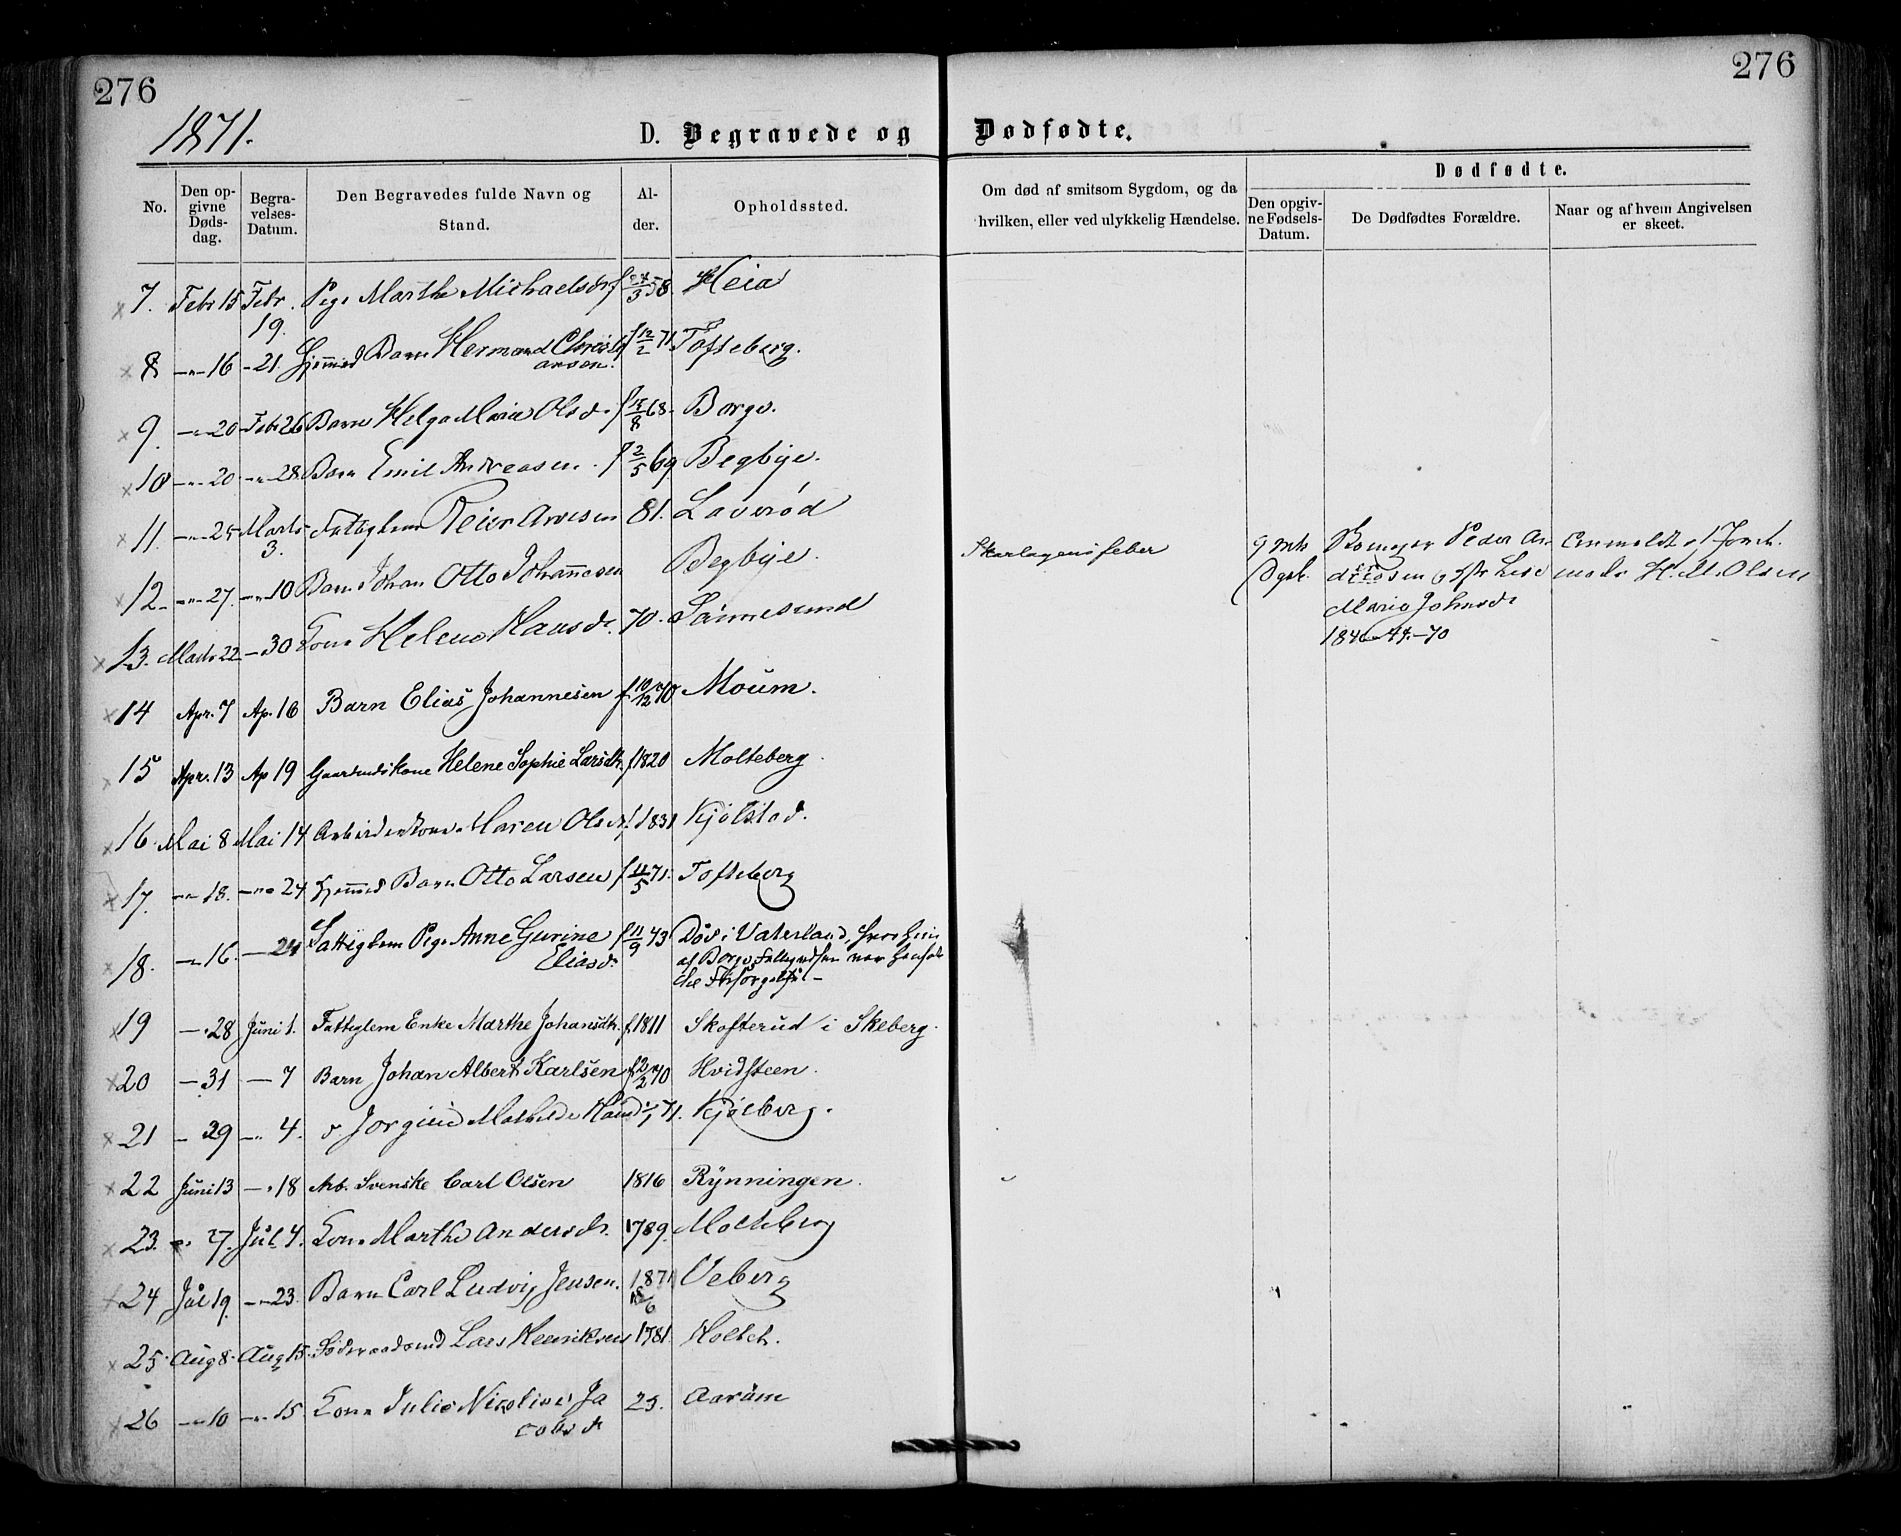 276
276
1871.
D. Begravede og Dødfødte.
No.
Den opgivne Dødsdag.
Begravelses-Datum.
Den Begravedes fulde Navn og Stand.
Alder.
Opholdssted.
Om død af smitsom Sygdom, og da hvilken, eller ved ulykkelig Hændelse.
Dødfødte.
Den opgivne Fødsels-Datum.
De Dødfødtes Forældre.
Naar og af hvem Angivelsen er skeet.
7. Febr 15 Febr. 19. Pige Marthe Michaelsdr f 3 58. Heia
8 -"- 16 - 21. Hjemmed Barn Hermand Christiansen. f 12/2 71. Tofteberg.
9. -"- 20 Febr 26 Barn Helga Marie Olsd. f /8 68. Borge.
10 -"- 20. -"- 28 Barn Emil Andreasen. f 2/5 69. Begbye.
11. -"- 25 Marts 3. Fattiglem Peier Arvesen 81. Laverød
12. -"- 27. -"- 10 Barn Johan Otto Johannesen Begbye. Skarlagensfeber 9 Mts Dgsb. Peder Andersen Marie Johnsdr 1840 - 44. - 70 Anmeldt af Jordmoder H. M. Olsen
13. Marts 22 - 30 Kone Helene Hansdr. 70. Sannesund
14 Apr. 7 Ap. 16 Barn Elias Johannesen f 10/12 70 Moum.
15 Apr. 13 Ap 19 Gaardmdskone Helene Sophie Larsdtr. f 1820 Molteberg
16. Mai 8 Mai 14 Arbeiderkone Maren Olsdr. f 1831 Kjølstad.
17. -"- 18. -"- 24 Hjemmed Barn Otto Larsen f 11/5 71. Tofteberg
18. -"- 16. - 24 Fattiglem Pige Anne Gurine Eliasdr f 11/9 43 Død i Vaterland, hvor hun af Borge var hensat til Forsørgelse -
19 - 28 Juni 1. Fattiglem Enke Marthe Johansdtr. f. 1811 Skofterud i Skeberg.
20 - 31 - 7 Barn Johan Albert Karlsen f 2/2 70 Hvidsteen.
21 - 29 -"- 4. Jørgine Mathilde 71. Kjølberg.
22 Juni 13 -"- 18 Arb. Svenske Carl Olsen 1816 Rynningen.
23. -"- 27. Jul. 4. Kone Marthe Andersdr. 1789. Molteberg
24 Jul 19. -"- 23. Barn Carl Ludvig Jensen. 1871 18/6 Veberg
25 Aug 8. Aug 15. Føderaadsmd Lars Henriksen 1781. Holtet.
26 -"- 10 -"- 15 Kone Julie Nicoline Jacobsdr 25. Aarum